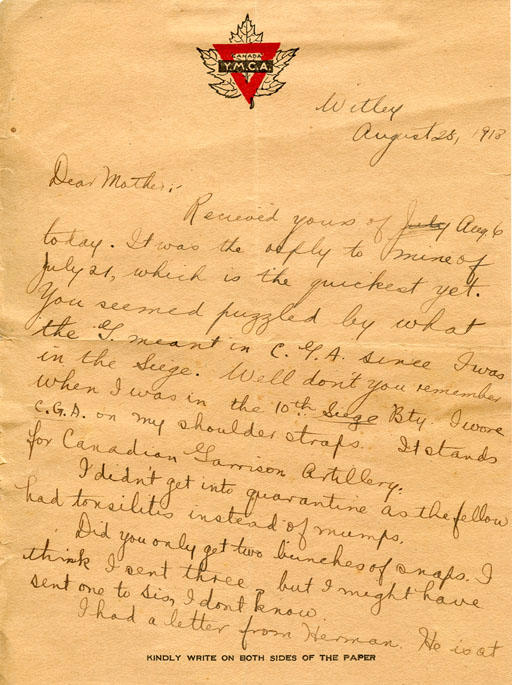 CANADA
Y.M.C.A.
Witley
August 28, 1918
Dear Mother:-
Recieved yours of July Aug 6
today. It was the reply to mine of
July 21, which is the quickest yet.
You seemed puzzled by what
the G. meant in C.G.A. since I was
in the Siege. Well don't you remember
when I was in the 10th Siege Bty. I wore
C.G.A. on my shoulder straps. It stands
for Canadian Garrison Artillery.
I didn't get into quarantine as the fellow
had tonsilitis instead of mumps.
Did you only get two bunches of snaps. I
think I sent three, but I might have
sent one to Sis, I dont know.
I had a letter from Herman. He is at
KINDLY WRITE ON BOTH SIDES OF THE PAPER